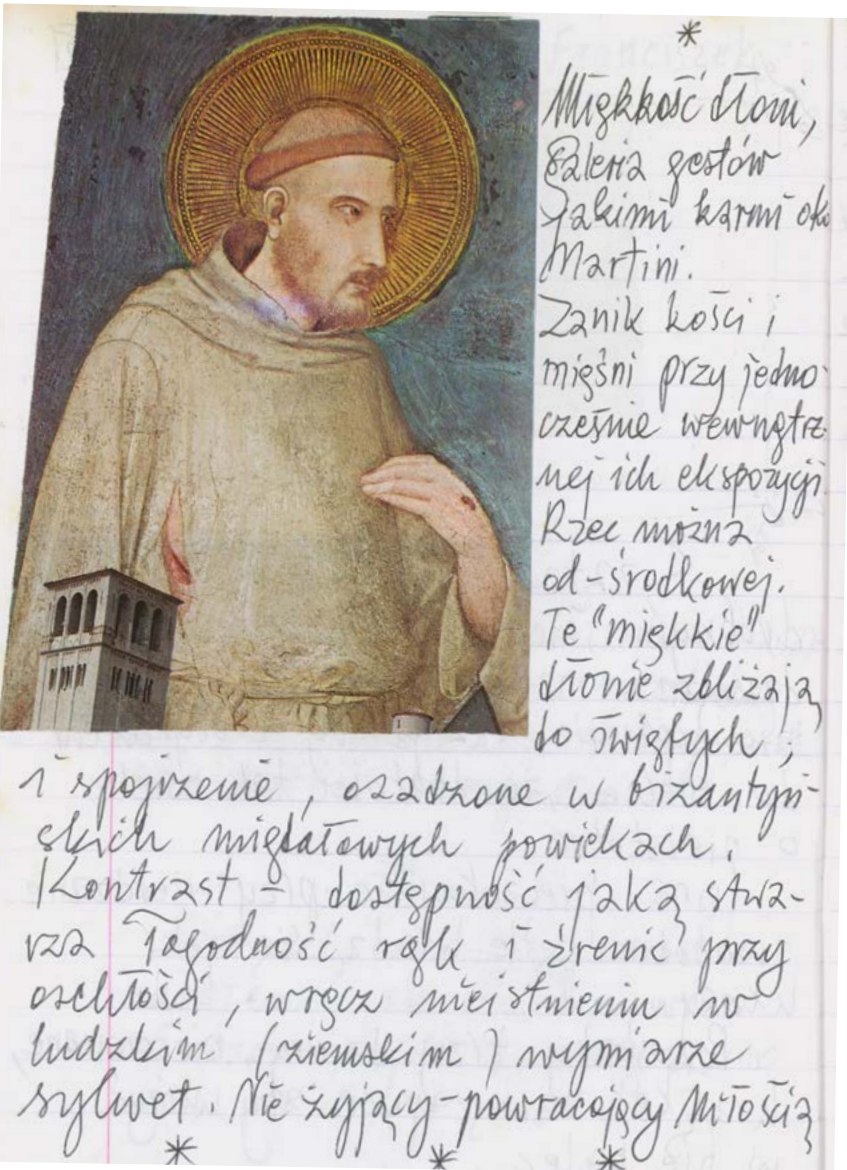 *
Miękkość dłoni,
galeria gestów
jakimi karmi oko
Martini.
Zanik kości i
mięśni przy jedno-
cześnie wewnętrz-
nej ich ekspozycji.
Rzec można
od-środkowej.
Te "miękkie"
dłonie zbliżają
do świętych ;
i spojrzenie, osadzone w bizantyń-
skich migdałowych powiekach.
Kontrast - dostępność jaką stwa-
rza łagodność rąk i źrenic przy
oschłości, wręcz nieistnieniu w
ludzkim (ziemskim) wymiarze
sylwet. Nie żyjący-powracający Miłością
* * *